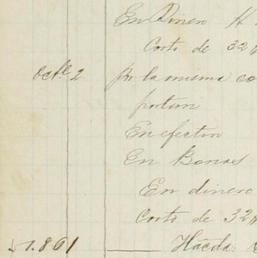 En Dinero
Costo de 32
Octe 2 por la misma
portan
En efectivo
En Bonos
En dinero
Costo de 32
1.861 Hacda